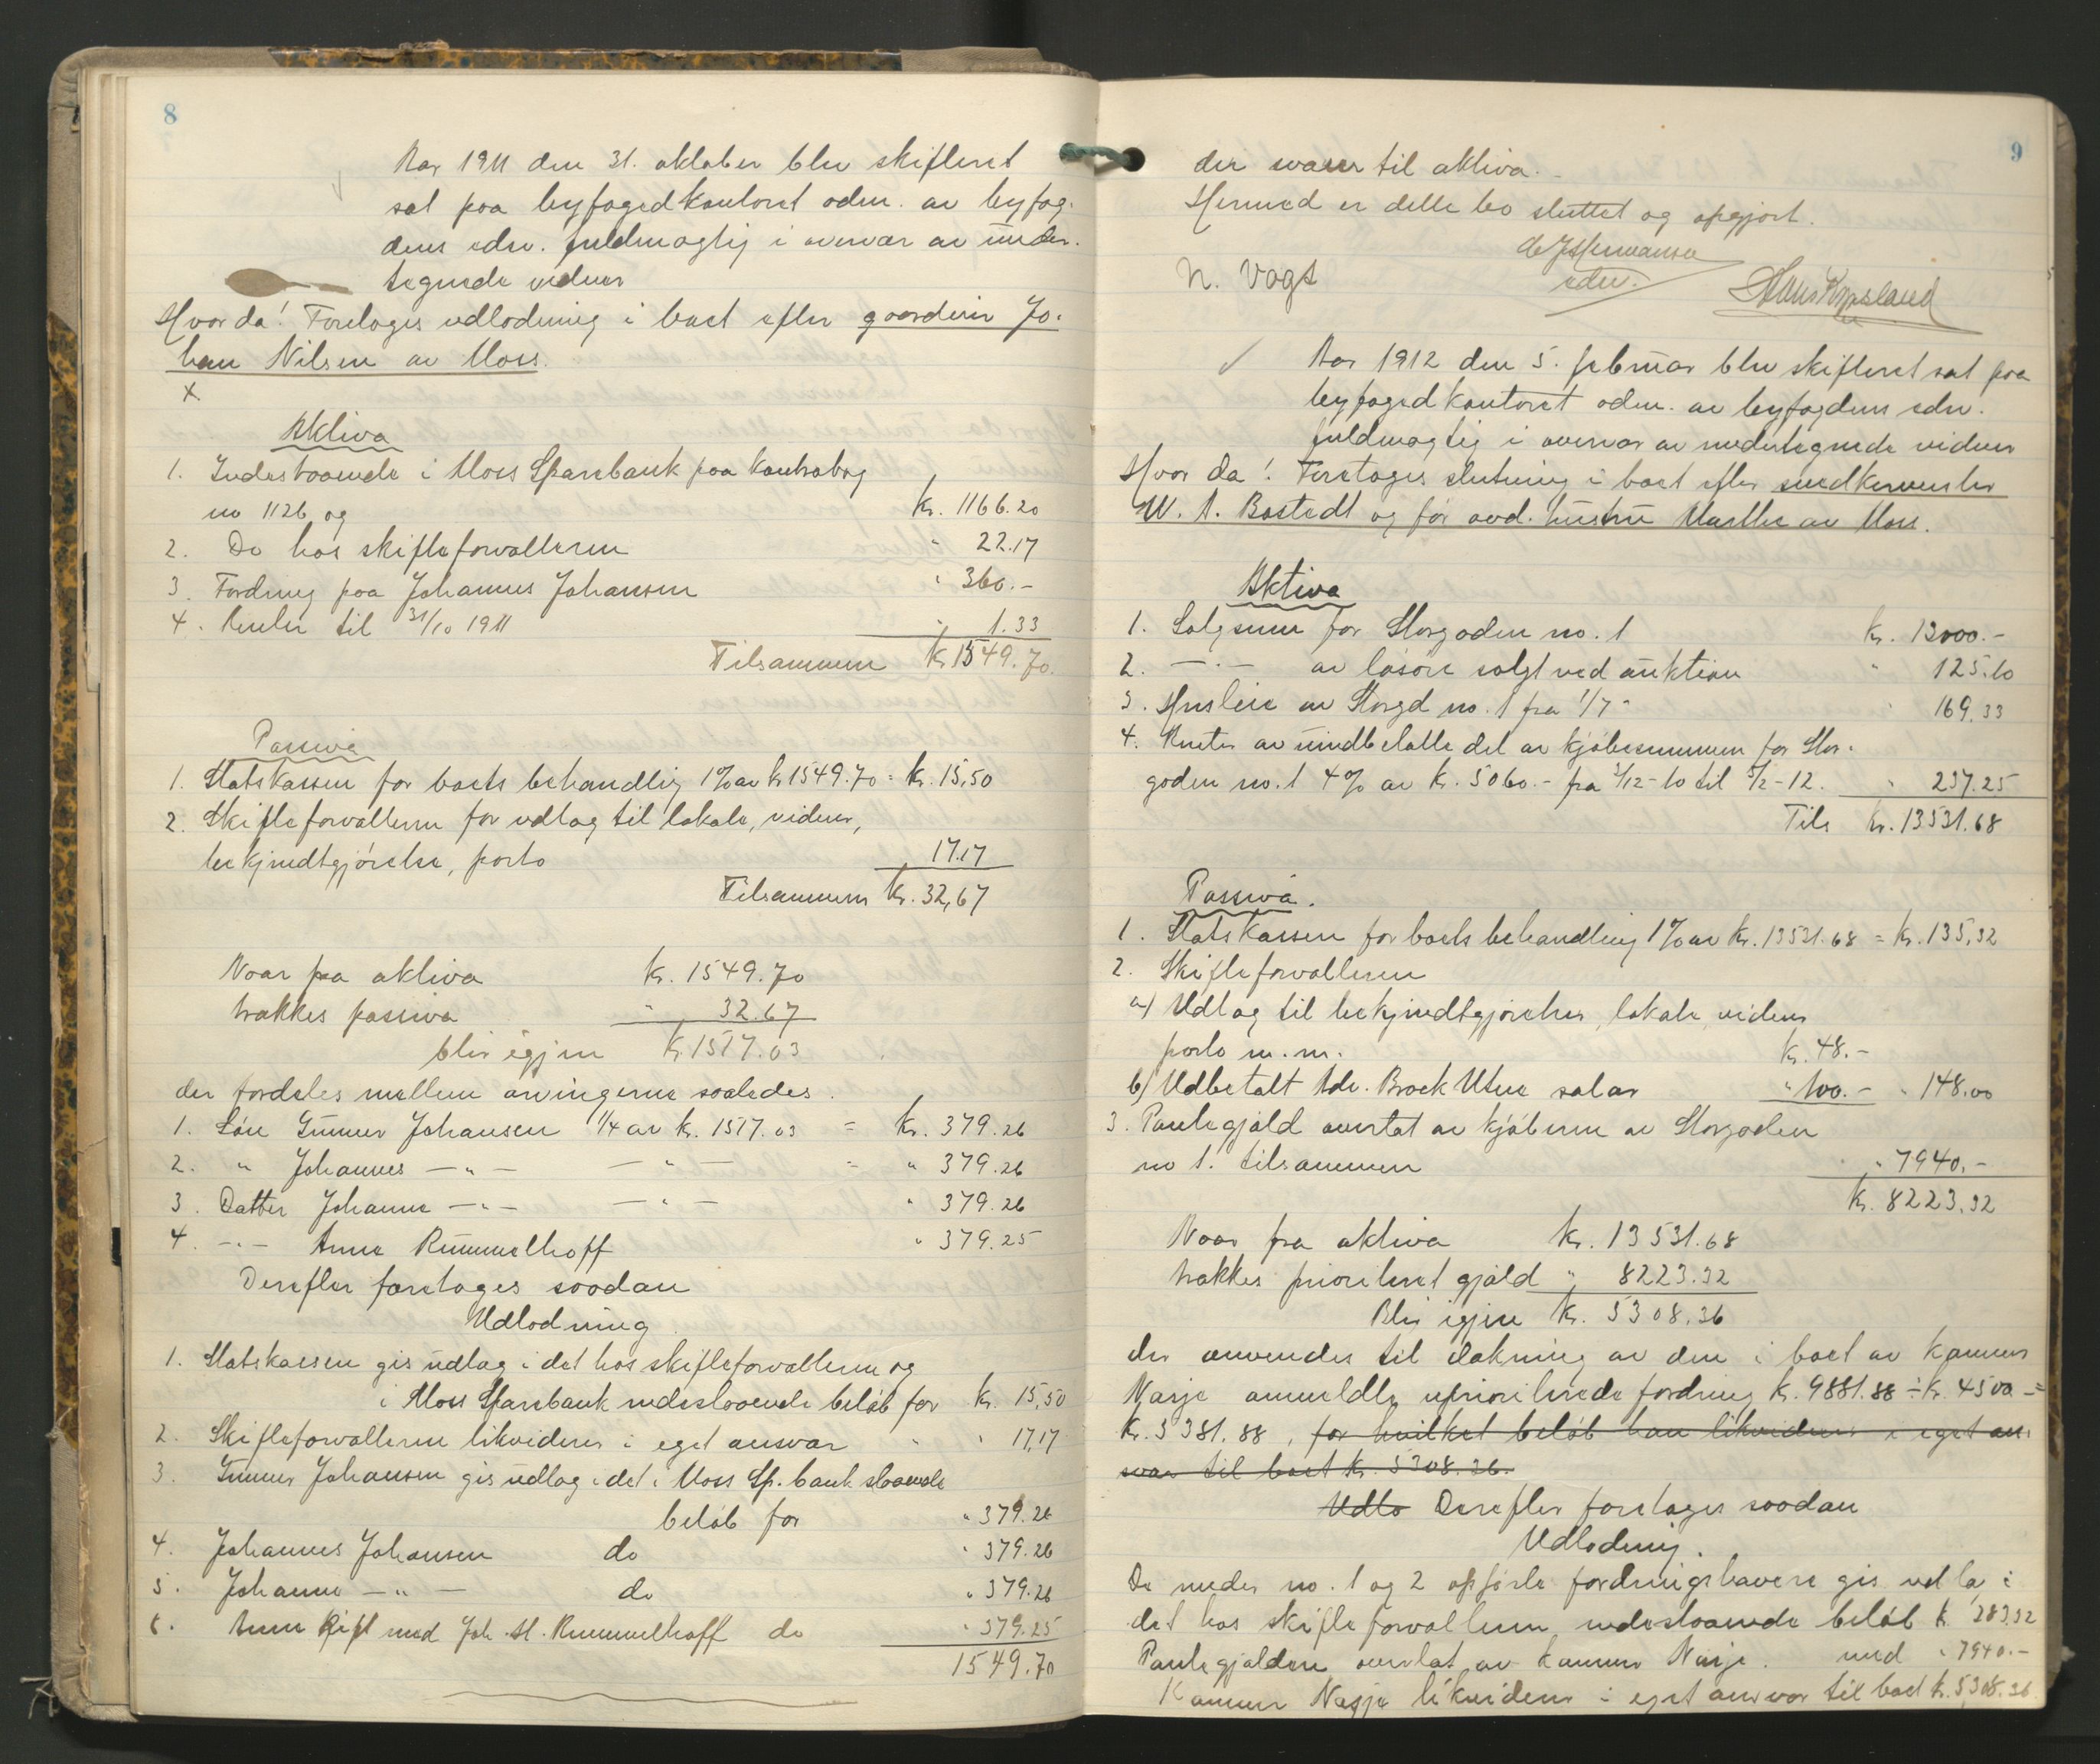 8
Aar 1911 den 31. oktober blev skifteret
sat paa byfogedkontoret adm. av byfog-
dens edsv. fuldmægtig i overvær av under-
tegnede vidner
Hvorda! Foretoges udlodning i boet efter gaardeier Jo-
han Nilsen av Moss.
X
Aktiva
1. Indestaaende i Moss Sparebank paa Kontrabog
no 1126 og kr. 1166.20
2. Do hos skifteforvalteren " 22.17
3. Fordring paa Johannes Johansen " 360.-
4. Renter til 31/10 1911 " 1.33
Tilsammen Kr 1549.70.
Passiva
1. Statskassen for boets behandlig 1% av kr 1549.70 = kr. 15,50
2. Skifteforvalteren for udlæg til lokale, vidner,
bekjendtgjørelse, porto 17.17
Tilsammen kr. 32,67
Naar fra aktiva kr. 1549.70
trækkes passiva " 32.67
blir igjen kr. 1517.03
der fordeles mellem arvingerne saaledes.
1. Søn Gunner Johansen 1/4 av kr. 1517.03 = kr. 379.26
2. " Johannes —"— —"— = " 379.26
3. Datter Johanne —"— —"— " 379.26
4. —"— Anna Rummelhoff " 379.25
Derefter foretages saadan
Udlodning.
1. Statskassen gis udlæg i det hos skifteforvalteren og
i Moss Sparebank indestaaende beløb for kr. 15,50
2. Skifteforvalteren likviderer i eget ansvar " " 17,17
3. Gunner Johansen gis udlæg i det i Moss Sp.bank staaende
beløb for " 379.26
4. Johannes Johansen do " 379.26
5. Johanne —"— do " 379.26
6. Anna gift med Joh. M. Rummelhoff do " 379.25
1549.70
9
der svarer til aktiva.
Hermed er dette bo sluttet og opgjort.
N. Vogt
edsv.
Aar 1912 den 5. februar blev skifteret sat paa
byfogedkontoret adm. av byfogdens edsv.
fuldmægtig i overvær av undertegnede vidner
Hvor da! Foretoges slutning i boet efter
W. A. Bostedt og før avd. hustru Marthe av Moss.
Aktiva
1. Salgssum for Storgaden no. 1 kr. 13000.-
2. —"— av løsøre solgt ved auktion " 125.10
3. Husleie av Storgd no. 1 fra 1/7- " 169.33
4. Renter av uindbetalte del av kjøbesummen for Stor-
gaden no. 1 4% av kr. 5060.- fra 5/12-10 til 5/2-12. " 237.25
Tils kr. 13531.68
Passiva.
1. Statskassen for boets behandling 1% av kr. 13531.68 = kr. 135,32
2. Skifteforvalteren
a) Udlæg til bekjendtgjørelser, lokale, vidner
porto m.m. kr. 48.-
b) Udbetalt Adv. Brock Utne salær " 100.- " 148.00
3. Pantegjæld overtat av kjøberen av Storgaden
no 1. tilsammen " 7940.-
Kr. 8223,32
Naar fra aktiva kr. 13531.68
trækkes prioritert gjæld " 8223.32
Blir igjen kr. 5308.36
der anvendes til dækning av den i boet av kjøpmann
Nasje anmeldte uprioriterede fordring kr. 9881.88 ÷ kr. 4500 =
kr. 5381.88, for hvilket beløb han likviderer i eget an-
svar til boet kr. 5308.36.
Udlo Derefter foretages saadan
Udlodning.
De under no. 1 og 2 opførte fordringshavere gis udlæ i
det hos skifteforvalteren indestaaende beløb kr 283,32
Pantegjælden overtat av Nasje. med " 7940.-
Nasje likviderer i eget ansvar til boet kr. 5308.36